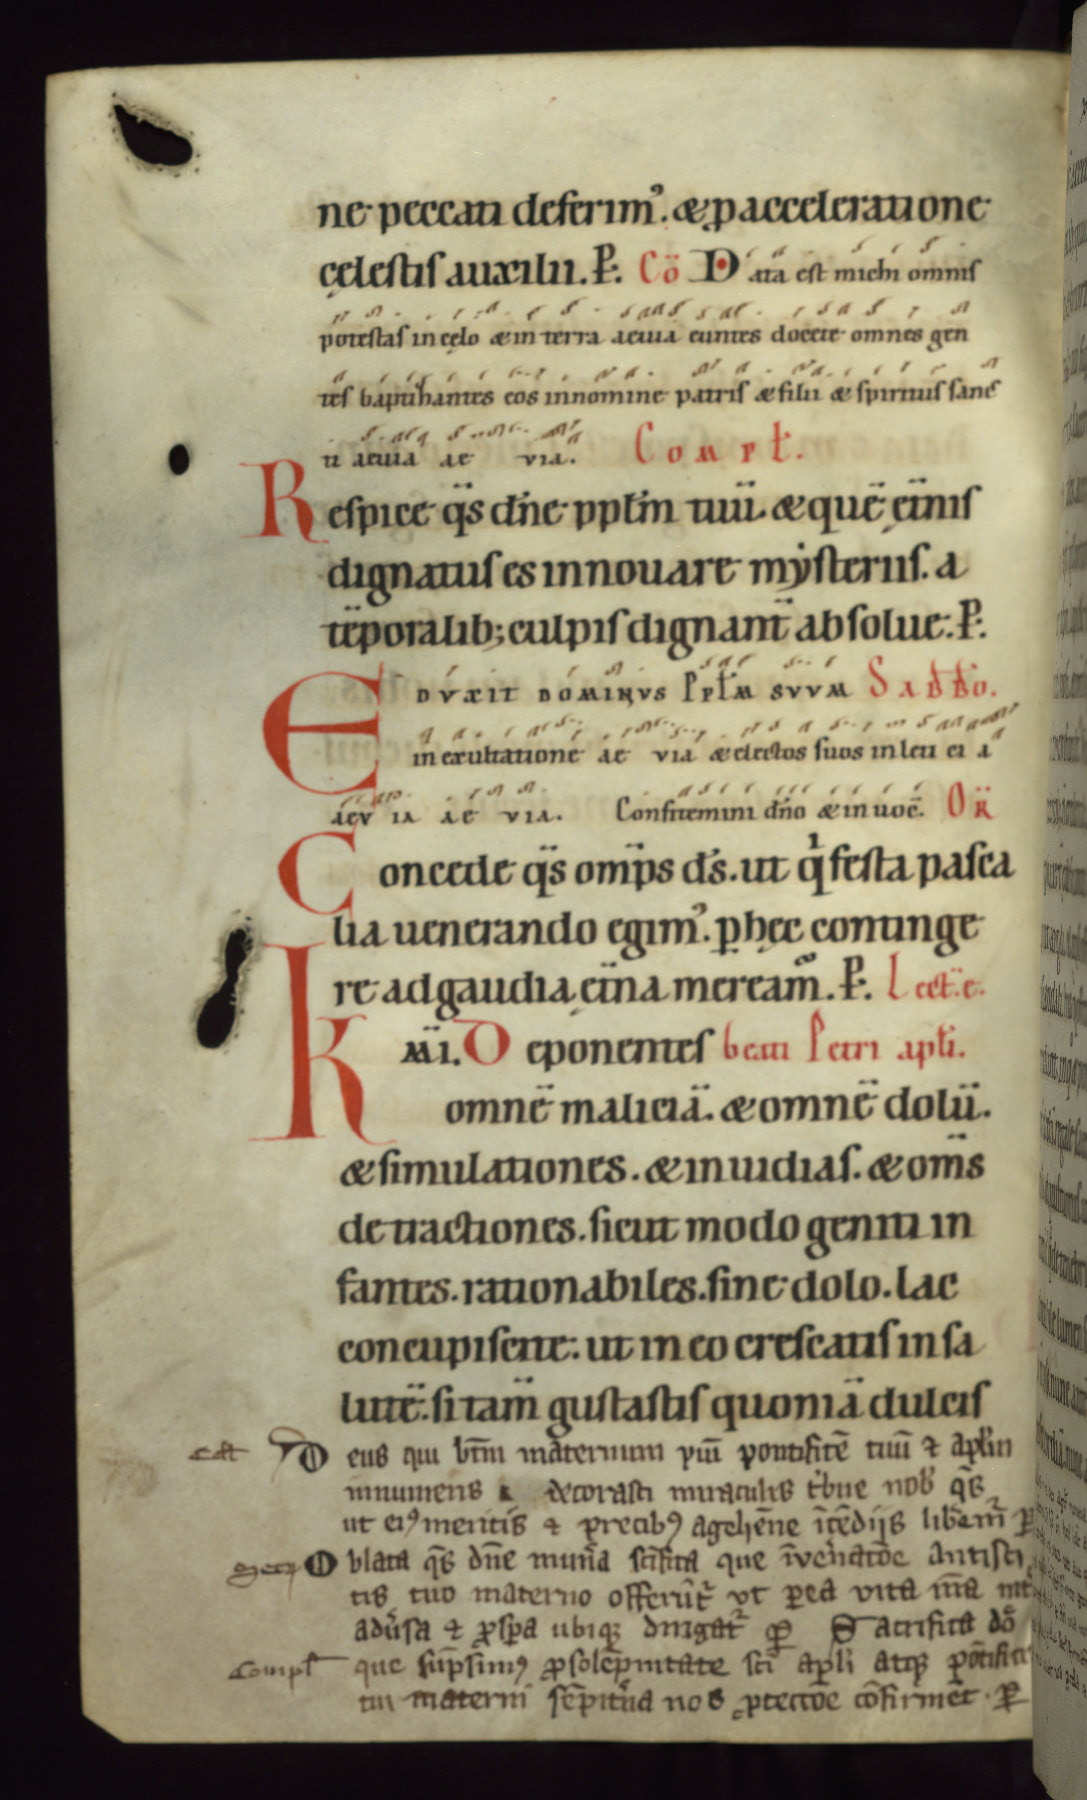 ne peccati deferim᾽. & p̱ acceleratione
cęlestis auxilii. P̱. Cō Data est michi omnis
potestas in cęlo & in terra aeuia euntes docete omnes gen
tes baptizantes eos in nomine patris & filii & spiritus sanc
ti aeuia ae uia. Compł.
Respice q̄s dn̄e pplm̄ tuū. & quē ęt̄nis
dignatus es innouare mẏsteriis. a
tēporalib; culpis dignant̄ absolue. P̱.
Eduxit dominus Pplm̄ suum Sabbo.
in exultatione ae uia & electos suos in leti ci a
aeu ia ae uia. Confitemini dn̄o & in uoc̄. Or̄
Concede q̄s omp̄s ds̄. ut qͥ festa pasca
lia uenerando egim᾽. p̱ hęc continge
re ad gaudia ęt̄na meream᷒. P̱. Lect. e.
Km̄i. Deponentes beati Petri apłi.
omnē maliciā. & omnē dolū.
& simulationes. & inuidias. & om̄s
detractiones. sicut modo geniti in
fantes. rationabiles. sine dolo. lac
concupiscite. ut in eo crescatis in sa
lutē. si tam̄ gustastis quoniā dulcis
Coƚt Deus qui btm̄ maternum piū pontificē tuū ⁊ aplm̄
innumeris decorasti miraculis tͥbue nob᾽ q̄s
ut eiꝰ meritis ⁊ precibꝰ a gehēne īcēdijs liberem᷒ p̱
Secr̄ Oblata q̄s dn̄e mun̄a scīfica que ī ven̄atōe antisti
tis tuo materno offerūt᷒ vt p̱ ea vita nr̄a int᷒
adūsa ⁊ ꝓsp̱a ubiqꝫ dirigat᷒ p̱ Sacrificia dō
Compƚ que sūpsimꝰ ꝓ solēpnitate scī apłi atqꝫ pōtifici
tui materni sēpit̄na nos ꝓtectōe cōfirmēt. p̱